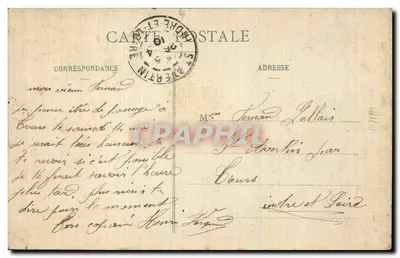 CARTE POSTALE
CORRESPONDANCE
ADRESSE
ST AVERTIN
INDRE-ET-LOIRE
mon vieux Fernand
je pense être de passage à
Tours le samedi
je serait très heureux de
te revoir si c'est possible
je te ferait savoir l'heure
plus tard, plus rien à te
dire pour le moment
Ton copain Henri
Mr Fernan Lallais
St Avertin par
Tours
indre et Loire
CARTES
POSTALES